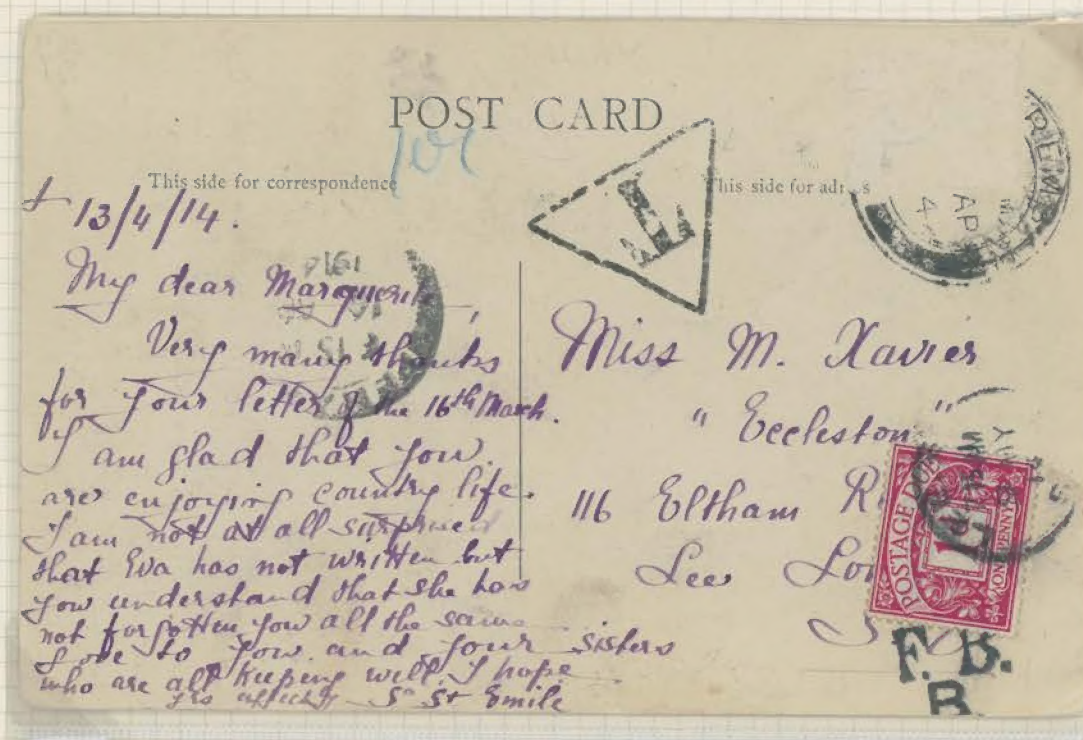 POST CARD
10c
This side for correspondence
This side for
T
+ 13/4/14.
My dear Marguerite,
Very many thanks
for your letter of the 16th March.
I am glad that you
are enjoying country life.
I am not at all surprised
that Eva has not written but
you understand that she has
not forgotten you all the same
Love to you and your sisters
who are all keeping well I hope
Yrs Sr St Emile
1914
Miss M. Xavier
"Eccleston"
116 Eltham
Lee
POSTAGE DUE
1D
ONE PENNY
AP
F. B.
B.